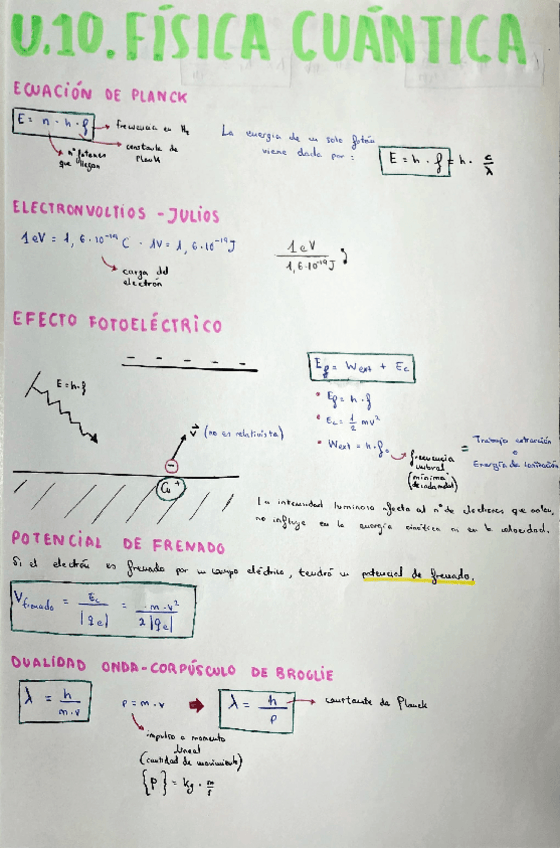 U.10. FÍSICA CUÁNTICA
ECUACIÓN DE PLANCK
E = n · h · f → frecuencia en Hz
constante de Planck
nº fotones que llegan
La energía de un solo fotón
viene dada por: E = h · f = h · c/λ
ELECTRONVOLTIOS - JULIOS
1eV = 1,6·10⁻¹⁹ C · 1V = 1,6·10⁻¹⁹ J
1eV / 1,6·10⁻¹⁹ J
carga del
electrón
EFECTO FOTOELÉCTRICO
- - - - -
E = h·f
v⃗ (no es relativista)
-
Cu⁺
Ef = Wext + Ec
• Ef = h · f
• Ec = 1/2 mv²
• Wext = h·f₀ → frecuencia
umbral
(mínima
de cada metal)
= Trabajo extracción
o
Energía de ionización
La intensidad luminosa afecta al nº de electrones que salen,
no influye en la energía cinética ni en la velocidad.
POTENCIAL DE FRENADO
Si el electrón es frenado por un campo eléctrico, tendrá un potencial de frenado.
Vfrenado = Ec / |qe| = m·v² / 2|qe|
DUALIDAD ONDA-CORPÚSCULO DE BROGLIE
λ = h / m·v
p = m·v ➡ λ = h / p → constante de Planck
impulso o momento
lineal
(cantidad de movimiento)
{P} = kg · m/s